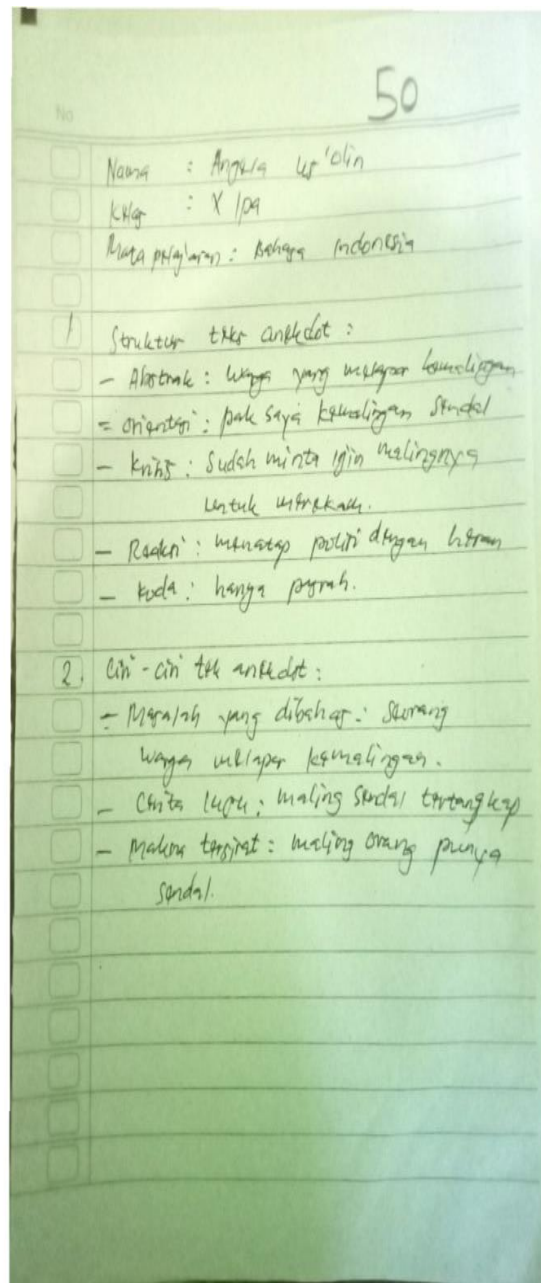 50
No
Nama : Angela us'olin
Kelas : X Ipa
Mata pelajaran : Bahasa Indonesia
1 Struktur teks anekdot :
- Abstrak : warga yang melapor kemalingan
= orientasi : pak saya kemalingan sendal
- Krisis : Sudah minta izin malingnya
untuk merekam.
- Reaksi : menatap polisi dengan heran
- Koda : hanya pasrah.
2. Ciri - ciri tek anekdot :
- Masalah yang dibahas : Seorang
warga melapor kemalingan.
- Cerita lucu : maling sendal tertangkap
- Makna tersirat : maling orang punya
sendal.